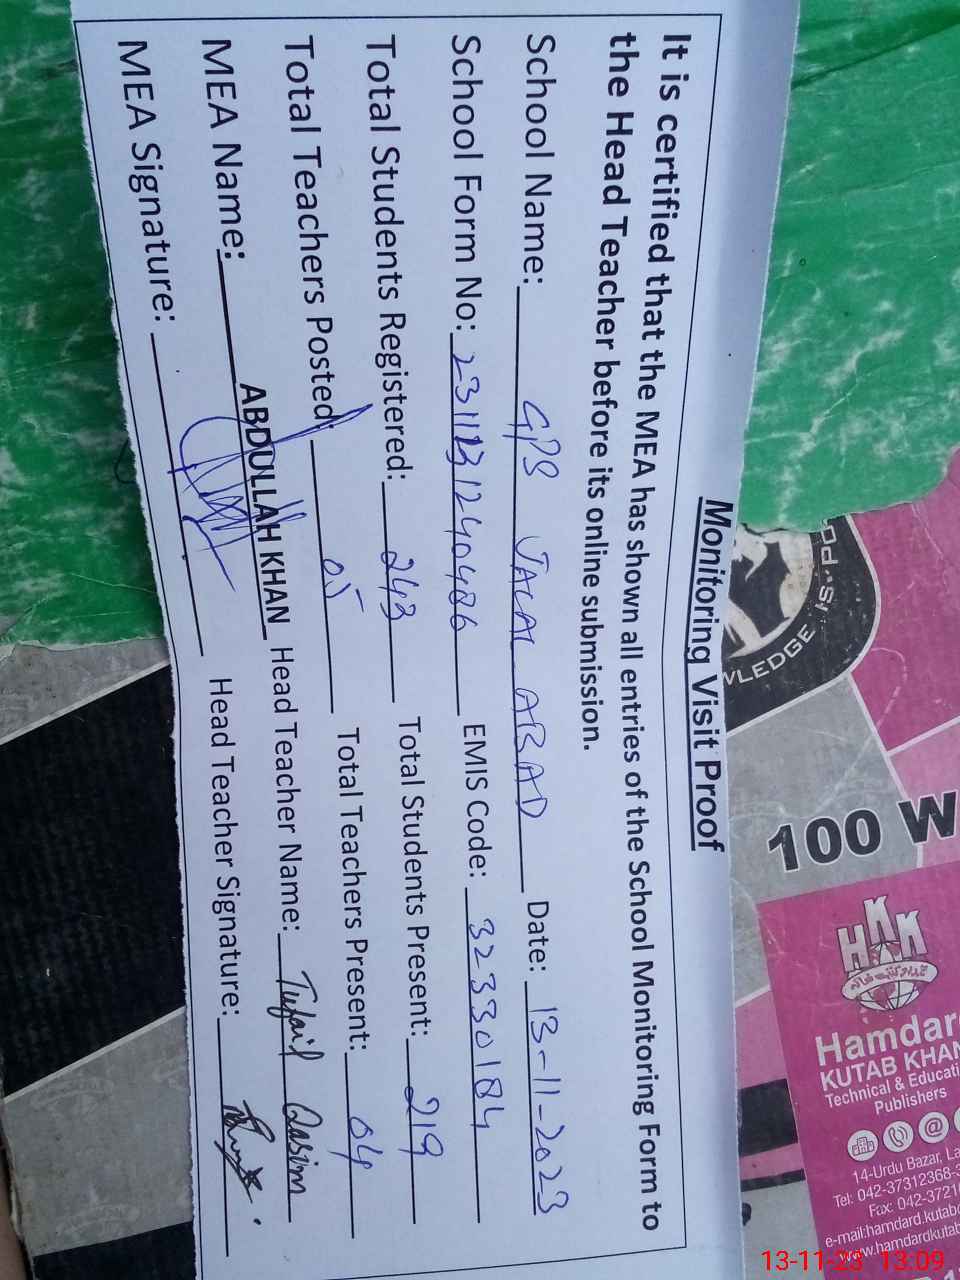 Monitoring Visit Proof
It is certified that the MEA has shown all entries of the School Monitoring Form to
the Head Teacher before its online submission.
School Name: GPS JALAL ABAD Date: 13-11-2023
School Form No: 23112312404086 EMIS Code: 32330184
Total Students Registered: 243 Total Students Present: 219
Total Teachers Posted: 05 Total Teachers Present: 04
MEA Name: ABDULLAH KHAN Head Teacher Name: Tufail Qasim
MEA Signature: Head Teacher Signature:
WLEDGE
100 W
HKK
Hamdard
KUTAB KHAN
Technical & Educati
Publishers
14-Urdu Bazar, La
Tel: 042-37312368-3
Fax: 042-3721
e-mail:hamdard.kutab
www.hamdardkutab
13-11-23 13:09